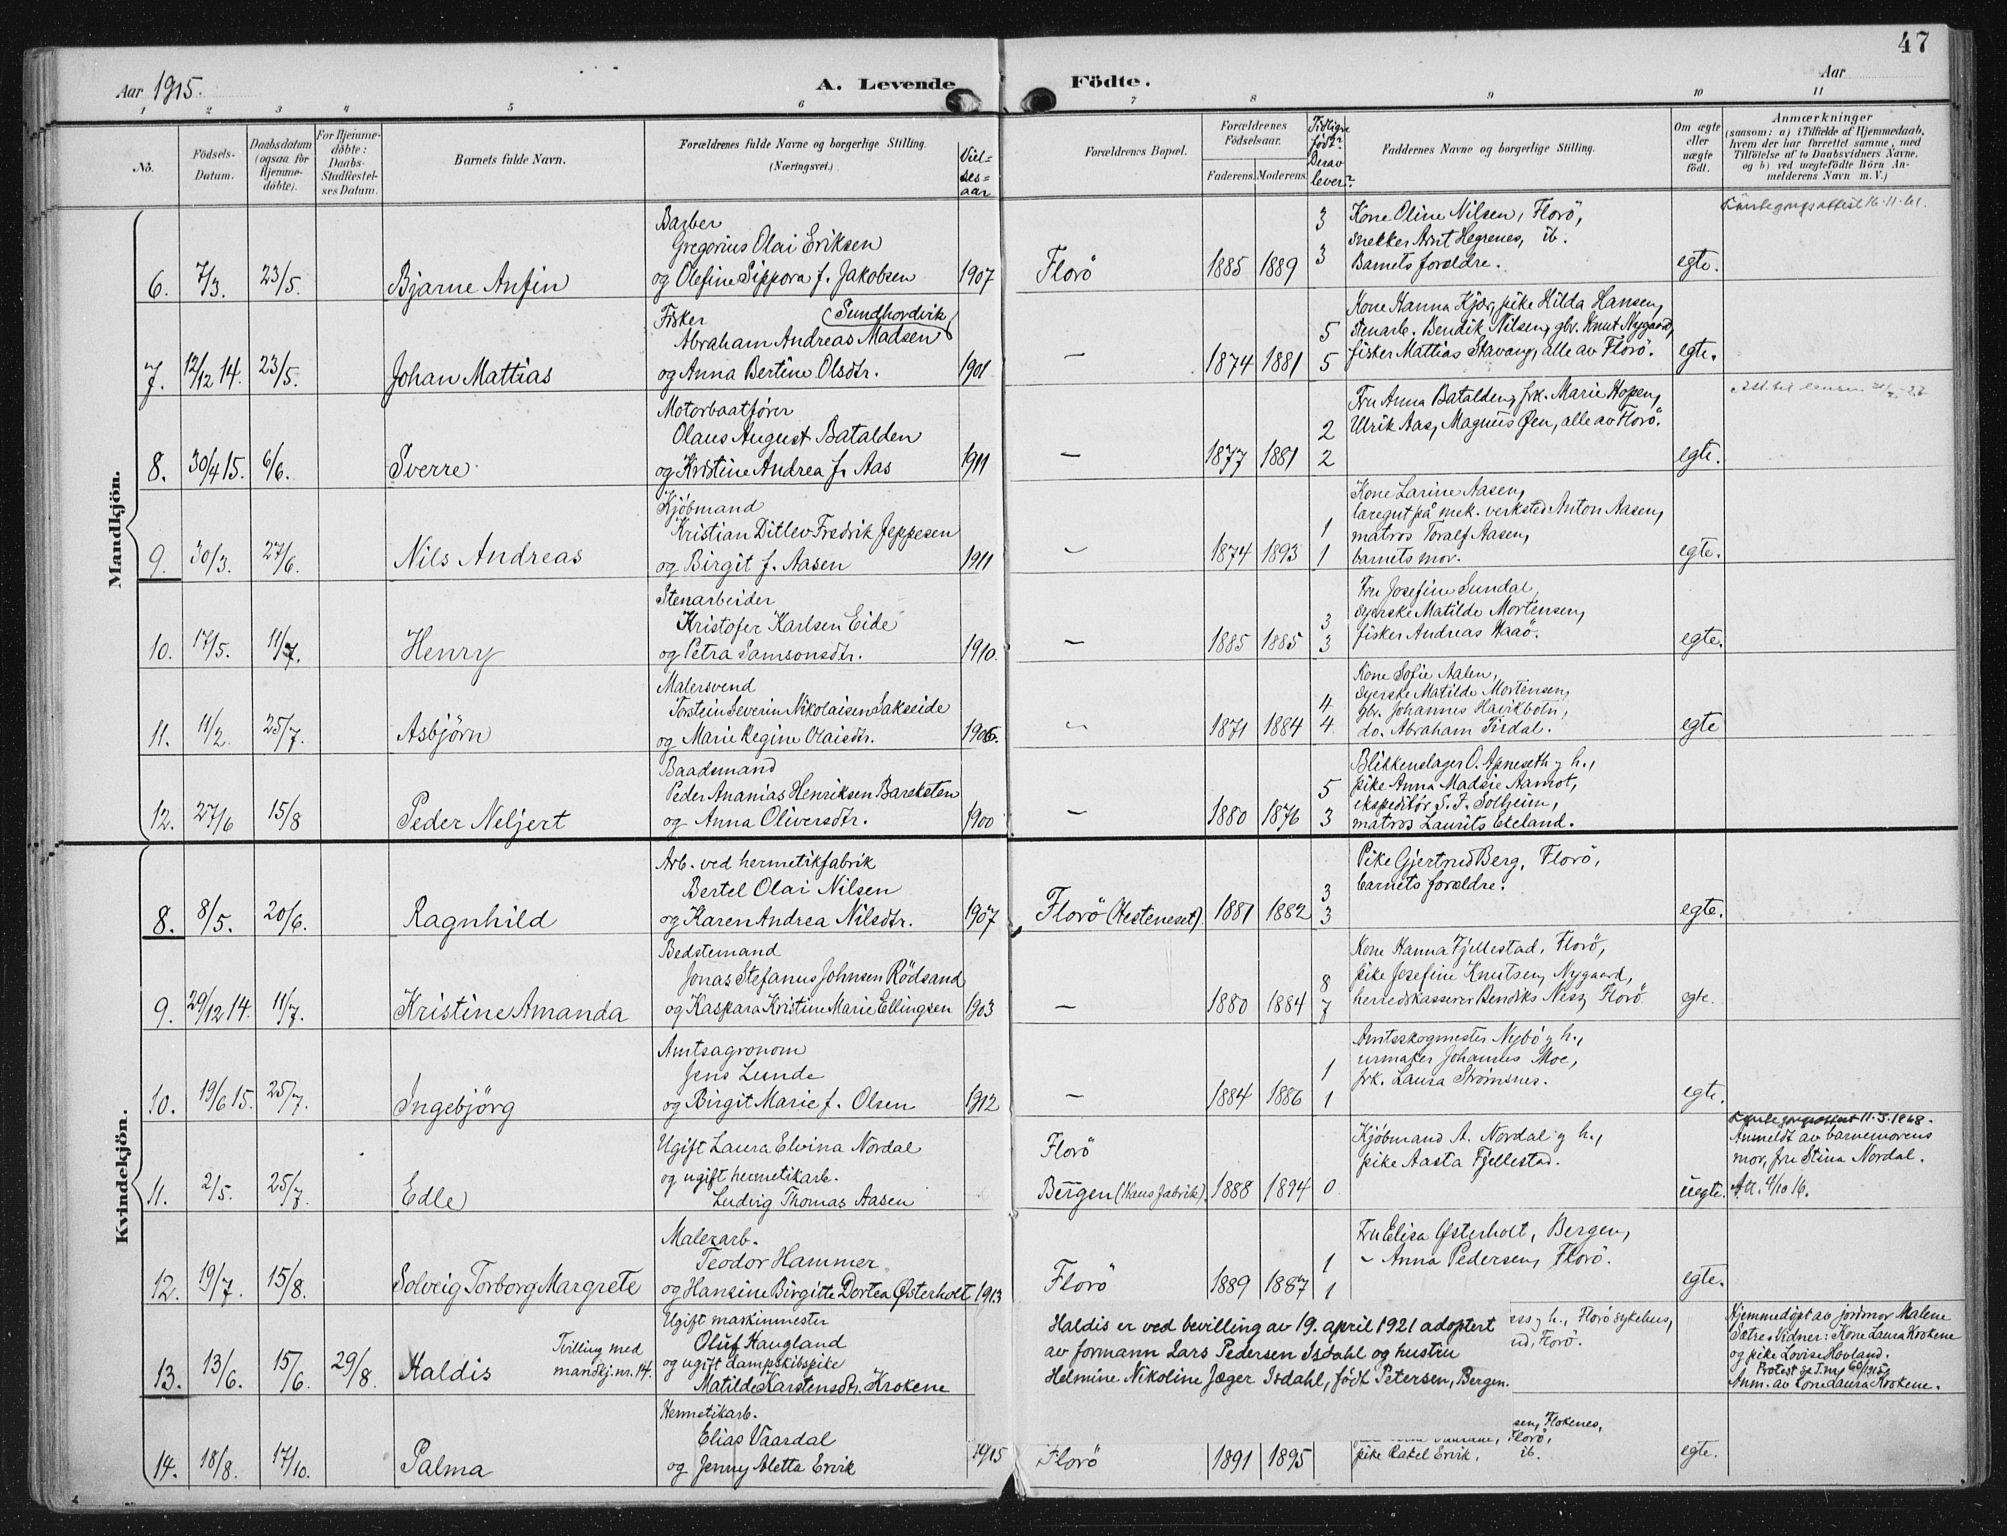 47
Aar 1915. A. Levende Födte. Aar
1 2 3 4 5 6 7 8 9 10 11
No.
Födsels-Datum.
Daabsdatum (ogsaa for Hjemme-döbte).
For Hjemme-döbte: Daabs-Stadfæstel-ses Datum.
Barnets fulde Navn.
Forældrenes fulde Navne og borgerlige Stilling. (Næringsvei.)
Viel-ses-aar
Forældrenes Bopæl.
Forældrenes Födselsaar.
Faderens. Moderens.
Tidligere født? Derav lever?
Faddernes Navne og borgerlige Stilling.
Om ægte eller uægte födt.
Anmærkninger
(saasom: a) i Tilfælde af Hjemmedaab, hvem der har forrettet samme, med Tilföielse af to Daabsvidners Navne, og b) ved uægtefödte Börn Anmelderens Navn m. V.)
Mandkjön.
Barber
Gregorius Olai Eriksen
6. 7/3. 23/5. Bjarne Anfin og Olefine Sippora f. Jakobsen 1907 Florö 1885 1889 3 3
Kone Oline Nilsen, Florö,
snekker Arnt Hegrenes, ib.
Barnets forældre. egte.
16-11-61.
Fisker (Sundhordvik)
Abraham Andreas Madsen
7. 12/12 14. 23/5. Johan Mattias og Anna Bertine Olsdtr. 1901 — 1874 1881 5 5
Kone Hanna Kjær, pike Hilda Hansen,
stenarb. Bendik Nilsen, gbr. Knut Nygaard,
fisker Mattias Stavang, alle av Florö. egte.
Motorbaatfører
Olaus August Batalden
8. 30/4 15. 6/6. Sverre og Kristine Andrea f. Aas 1911 — 1877 1881 2 2
Fru Anna Batalden, frk. Marie Hopen,
Ulrik Aas, Magnus Øen, alle av Florö. egte.
Kjöbmand
Kristian Ditlev Fredrik Jeppesen
9. 30/3. 27/6. Nils Andreas og Birgit f. Aasen 1911 — 1874 1893 1 1
Kone Larine Aasen,
læregut på mek. verksted Anton Aasen,
matros Toralf Aasen,
barnets mor. egte.
Stenarbeider
Kristofer Karlsen Eide
10. 17/5. 11/7. Henry og Petra Samsonsdtr. 1910. — 1885 1885 3 3
Fru Josefine Sundal,
syerske Matilde Mortensen,
fisker Andreas Haaö. egte.
Malersvend
Torstein Severin Nikolaisen Sakseide
11. 11/2. 25/7. Asbjörn og Marie Regine Olaisdtr. 1906. — 1871 1884 4 4
Kone Sofie Aalen,
syerske Matilde Mortensen,
gbr. Johannes Havikbotn,
do. Abraham Tisdal. egte
Baadsmand
Peder Ananias Henriksen Bareksten
12. 27/6 15/8 Peder Neljert og Anna Oliversdtr. 1900 — 1880 1876 5 3
Blikkenslager O. Apneseth g h.,
pike Anna Madsie Aamot,
ekspeditör S. F. Solheim,
matros Laurits Ekeland.
Kvindekjön.
Arb. ved hermetikfabrik
Bertel Olai Nilsen
8. 8/5. 20/6. Ragnhild og Karen Andrea Nilsdtr. 1907 Florö (Hesteneset). 1881 1882 3 3
Pike Gjertrud Berg, Florö,
barnets forældre. egte.
Bedstemand
Jonas Stefanus Johnsen Rödsand
9. 29/12 14. 11/7. Kristine Amanda og Kaspara Kristine Marie Ellingsen 1903 — 1880 1884 8 7
Kone Hanna Fjellestad, Florö,
pike Josefine Knutsen, Nygaard,
herredskasserer Bendiks Nes, Florö egte.
Amtsagronom
Jens Lunde
10. 19/6 15. 25/7. Ingebjörg og Birgit Marie f. Olsen 1912 — 1884 1886 1 1
Amtsskogmester Nybö g h.,
urmaker Johannes Moe,
frk. Laura Strömsnes. egte.
Ugift Laura Elvina Nordal
og ugift hermetikarb.
11. 2/5. 25/7. Edle Ludvig Thomas Aasen
Florö
Bergen (Hans fabrik). 1888 1894 0
Kjöbmand A. Nordal g h.,
pike Aasta Fjellestad. uegte.
11-3-1968.
Anmeldt av barnemorens
mor, fru Stina Nordal.
Att. 4/10 16.
Malerarb.
Teodor Hammer
12. 19/7. 15/8. Solveig Torborg Margrete og Hansine Birgitte Dortea Østerholt 1913 Florö 1889 1887 1 1
Fru Elisa Østerholt, Bergen,
— Anna Pedersen, Florö. egte.
Ugift maskinmester
Oluf Haugland
og ugift dampskibspike
13. 13/6. 15/6. 29/8. Haldis Tvilling med mandkj. nr. 14. Matilde Karstensdtr. Krokene
Haldis er ved bevilling av 19. april 1921 adoptert
av formann Lars Pedersen Isdahl og hustru
Helmine Nikoline Jæger Isdahl, født Petersen, Bergen.
g h., Florö sykehus,
Florö.
Hjemmedöpt av jordmor Malene
Sætre. Vidner: Kone Laura Krokene
og pike Lovise Hovland.
60/1915
Anm. av kone Laura Krokene.
Hermetikarb.
Elias Vaardal
14. 18/8. 17/10. Palma og Jenny Aletta Ervik 1915 Florö 1891 1895
sen, Flokenes,
Florö,
pike Rakel Ervik. ib. egte.